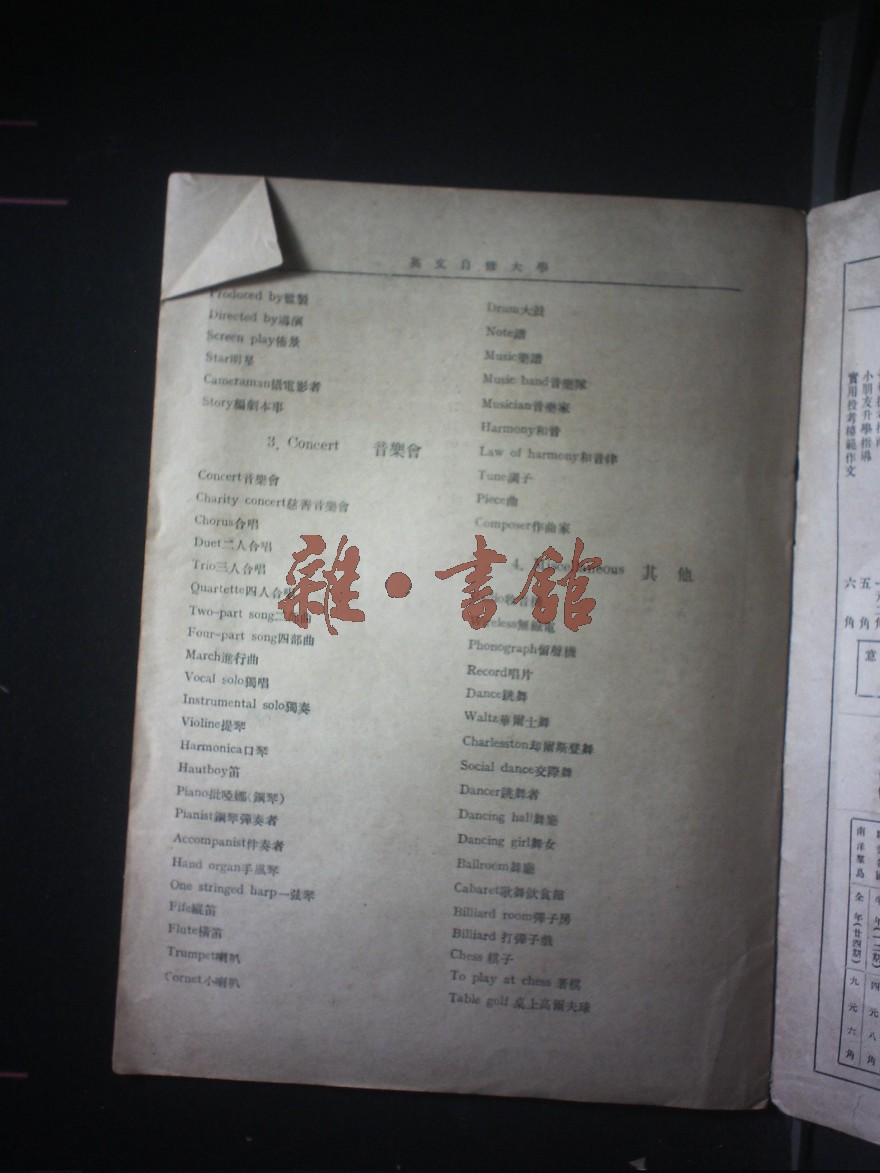 英文自修大學
Produced by監製
Directed by導演
Screen play佈景
Star明星
Cameraman攝電影者
Story編劇本事
3. Concert 音樂會
Concert音樂會
Charity concert慈善音樂會
Chorus合唱
Duet二人合唱
Trio三人合唱
Quartette四人合唱
Two-part song二部曲
Four-part song四部曲
March進行曲
Vocal solo獨唱
Instrumental solo獨奏
Violine提琴
Harmonica口琴
Hautboy笛
Piano批啞娜(鋼琴)
Pianist鋼琴彈奏者
Accompanist伴奏者
Hand organ手風琴
One stringed harp一弦琴
Fife縱笛
Flute橫笛
Trumpet喇叭
Cornet小喇叭
Drum大鼓
Note譜
Music樂譜
Music band音樂隊
Musician音樂家
Harmony和音
Law of harmony和音律
Tune調子
Piece曲
Composer作曲家
4. Miscellaneous 其他
Wireless無線電
Phonograph留聲機
Record唱片
Dance跳舞
Waltz華爾士舞
Charlesston却爾斯登舞
Social dance交際舞
Dancer跳舞者
Dancing hall舞廳
Dancing girl舞女
Ballroom舞廳
Cabaret歌舞飲食館
Billiard room彈子房
Billiard 打彈子戲
Chess 棋子
To play at chess 著棋
Table golf 桌上高爾夫球
雜·書館
小朋友升學指導
實用投考模範作文
五角
六角
意
南洋羣島
全年(廿四期)
九元六角
四元八角